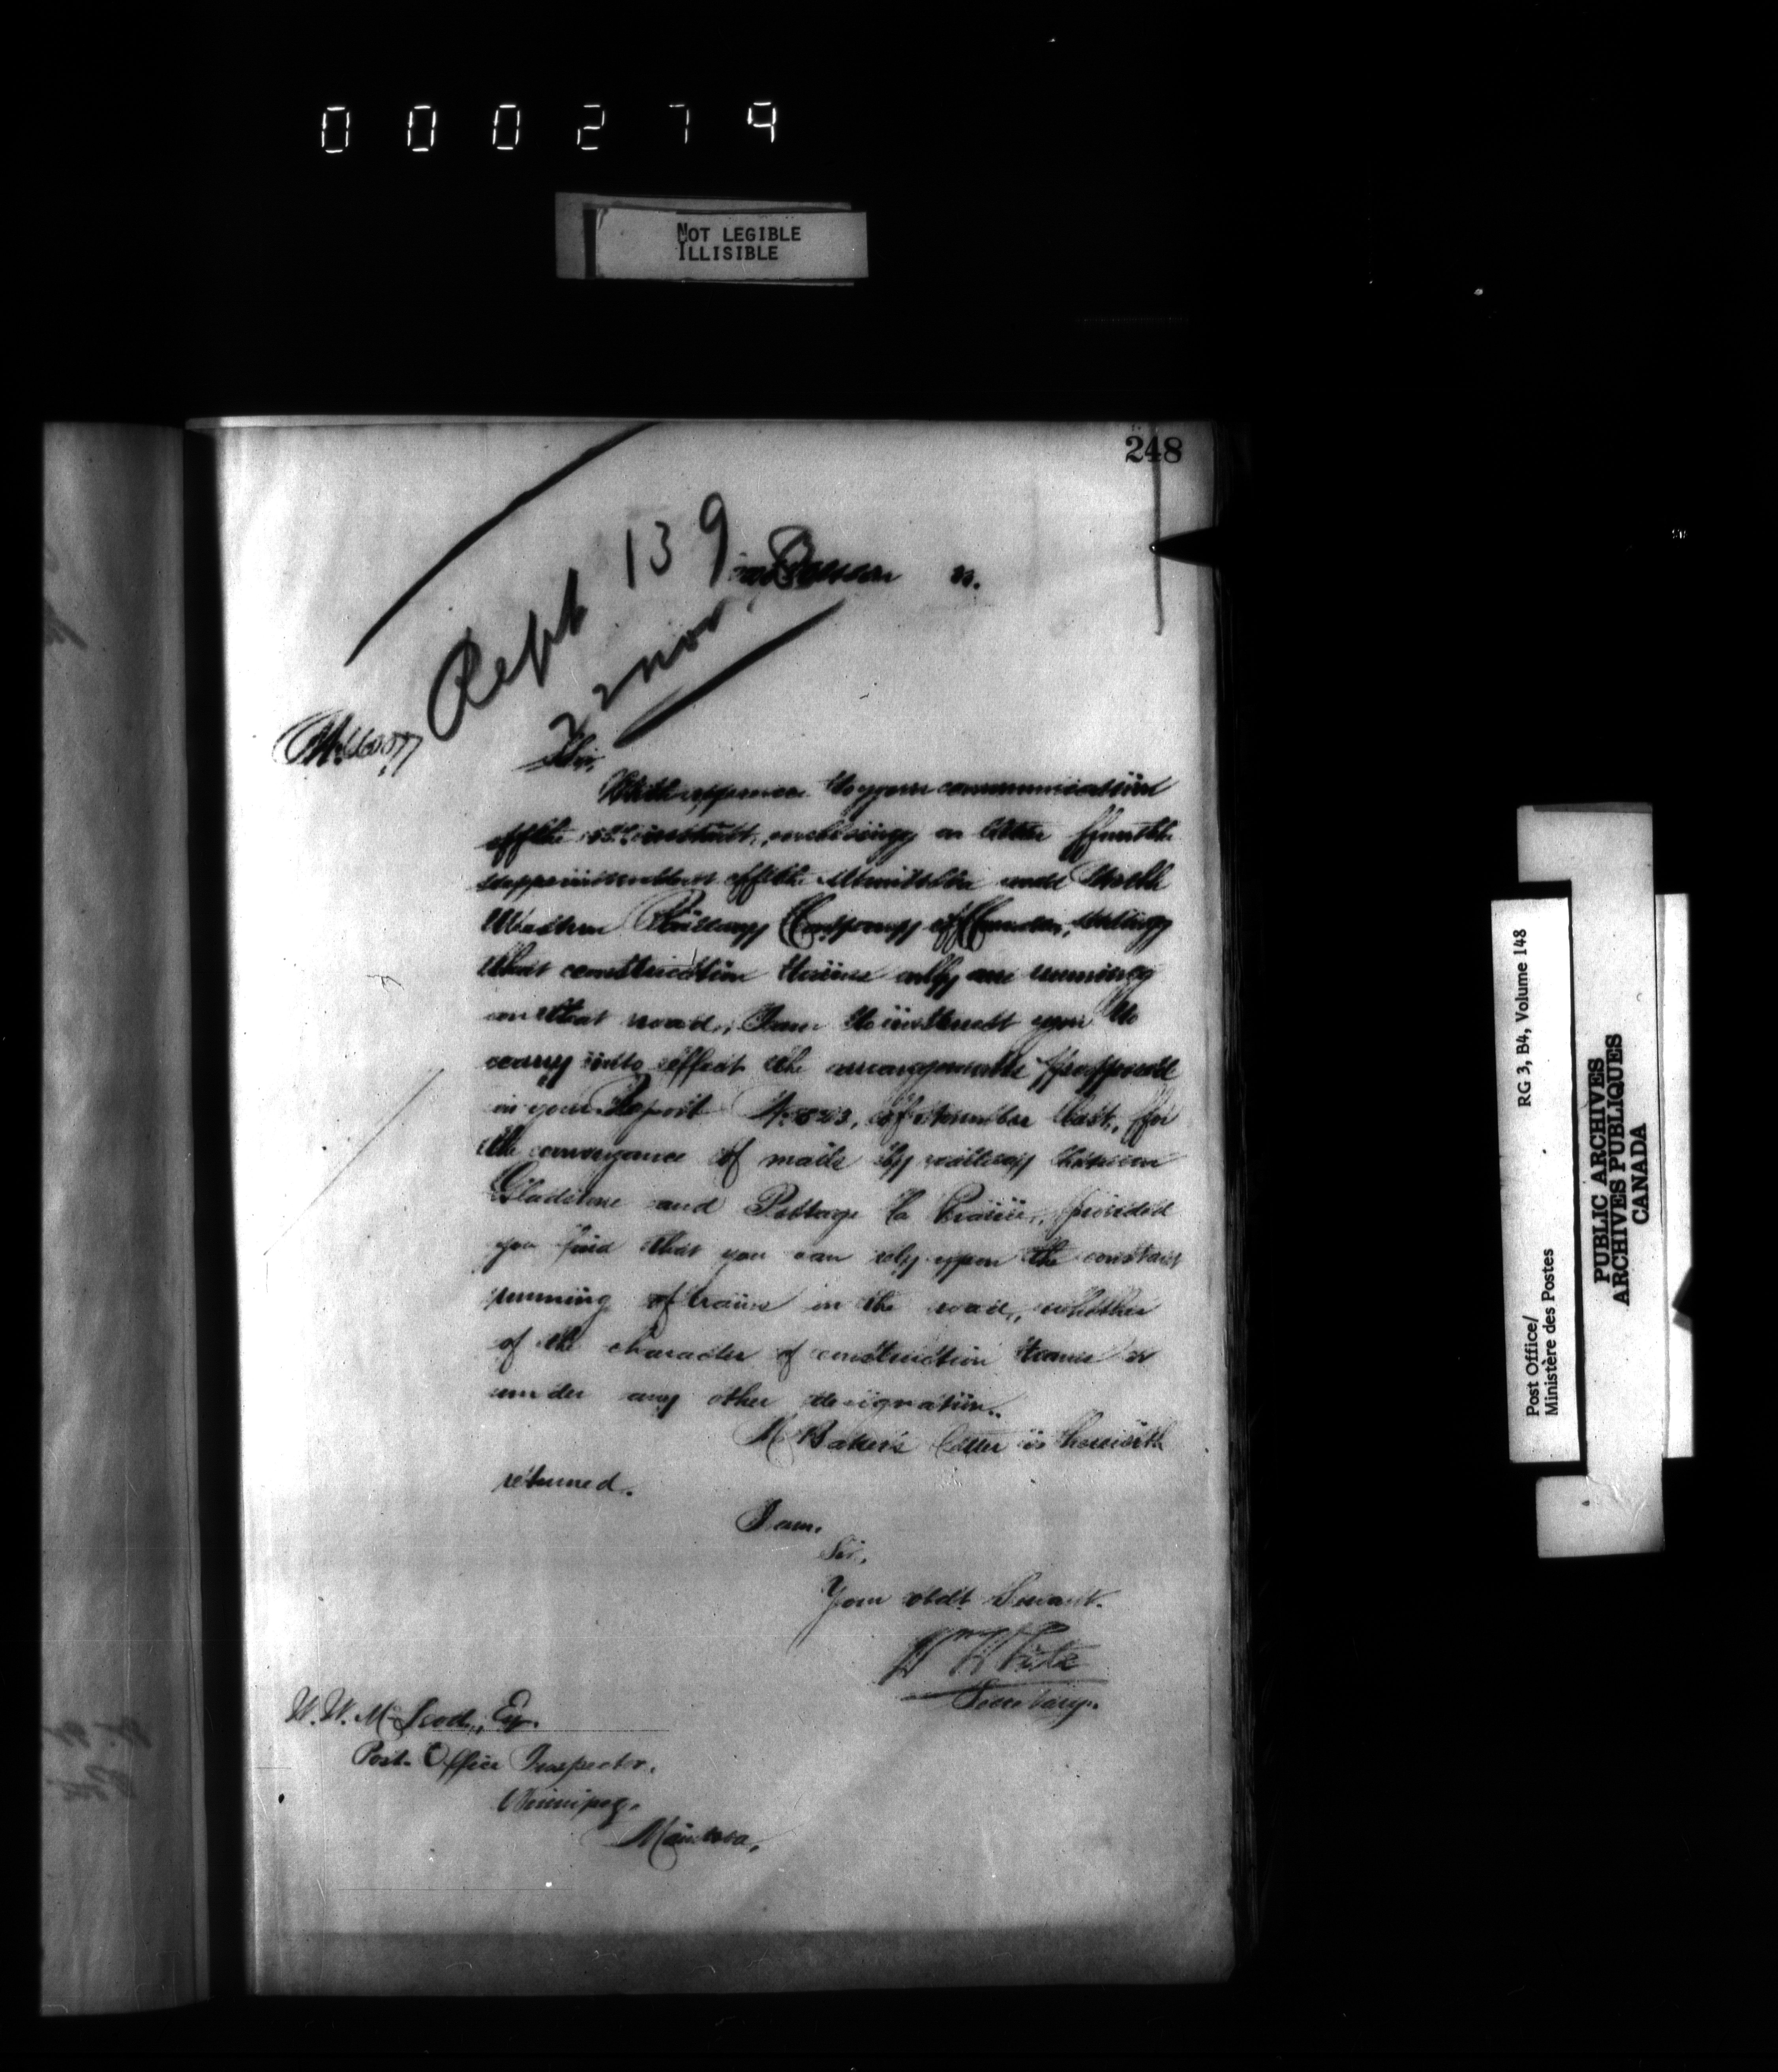 000279
NOT LEGIBLE
ILLISIBLE
248
Rept 139
22 Nov.
Sir,
With reference to your communication
of the instant, enclosing a letter from the
of the Manitoba and North
Western Railway Company of Canada, stating
that construction trains only are running
on that road, I am to instruct you to
carry into effect the arrangements proposed
in your Report No 823, of November last, for
the conveyance of mails by railway between
Gladstone and Portage la Prairie, provided
you find that you can rely upon the constant
running of trains on the road, whether
of the character of construction trains or
under any other designation.
Mr Baker's letter is herewith
returned.
I am,
Sir,
Your obdt. Servant.
Wm White
Secretary.
W. W. McLeod, Esq.
Post Office Inspector,
Winnipeg,
Manitoba,
RG 3, B4, Volume 148
Post Office/
Ministère des Postes
PUBLIC ARCHIVES
ARCHIVES PUBLIQUES
CANADA